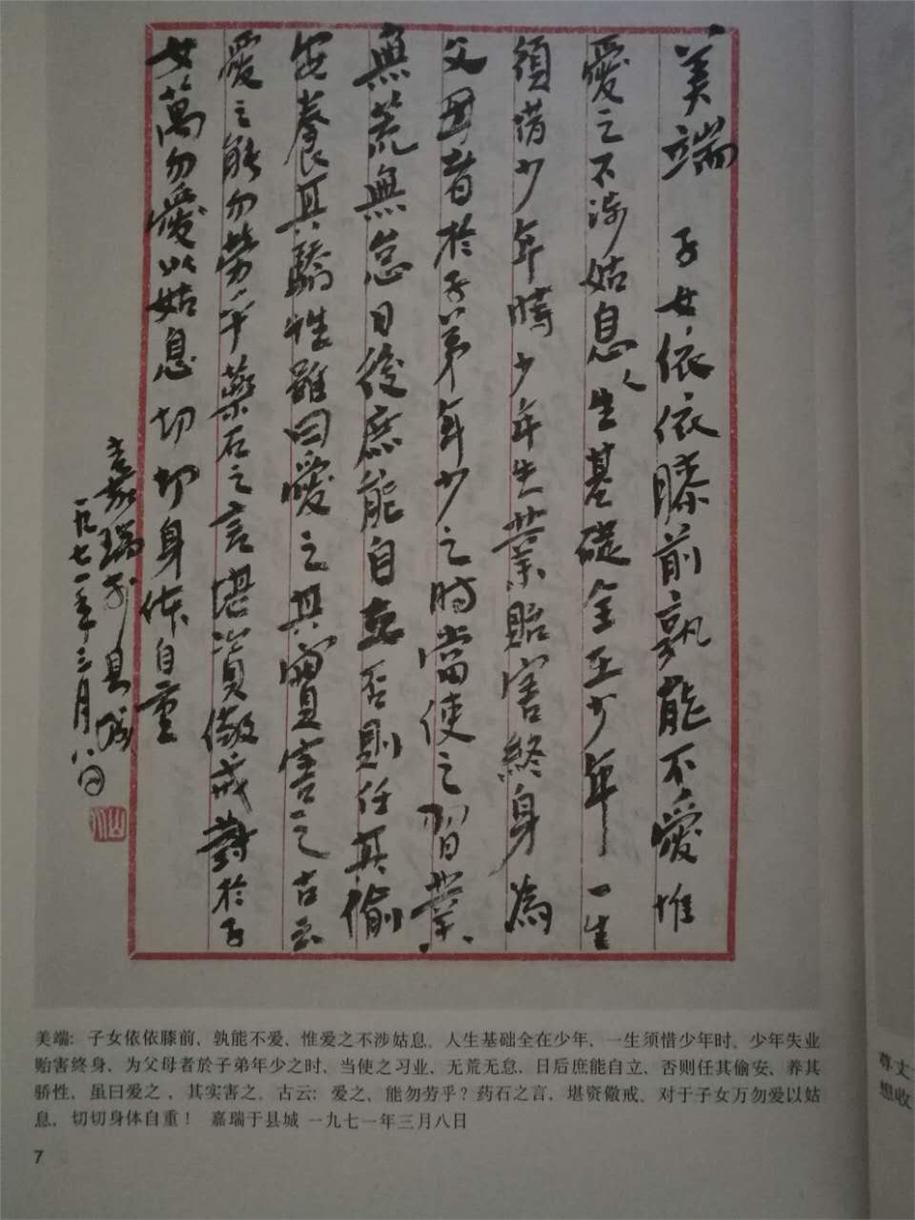 美端 子女依依膝前孰能不愛惟
愛之不涉姑息人生基礎全在少年一生
須惜少年時少年失業貽害終身為
父母者於子弟年少之時當使之習業
無荒無怠日後庶能自立否則任其偷
安養其驕性雖曰愛之其實害之古云
愛之能勿勞乎藥石之言堪資儆戒對於子
女萬勿愛以姑息切切身体自重
嘉瑞於县城
一九七一年三月八日
美端: 子女依依膝前、孰能不爱、惟爱之不涉姑息。人生基础全在少年、一生须惜少年时。少年失业
贻害终身、为父母者於子弟年少之时、当使之习业、无荒无怠、日后庶能自立、否则任其偷安、养其
骄性，虽曰爱之 ，其实害之。古云: 爱之、能勿劳乎? 药石之言，堪资儆戒。对于子女万勿爱以姑
息，切切身体自重！ 嘉瑞于县城 一九七一年三月八日
7
尊丈
想收